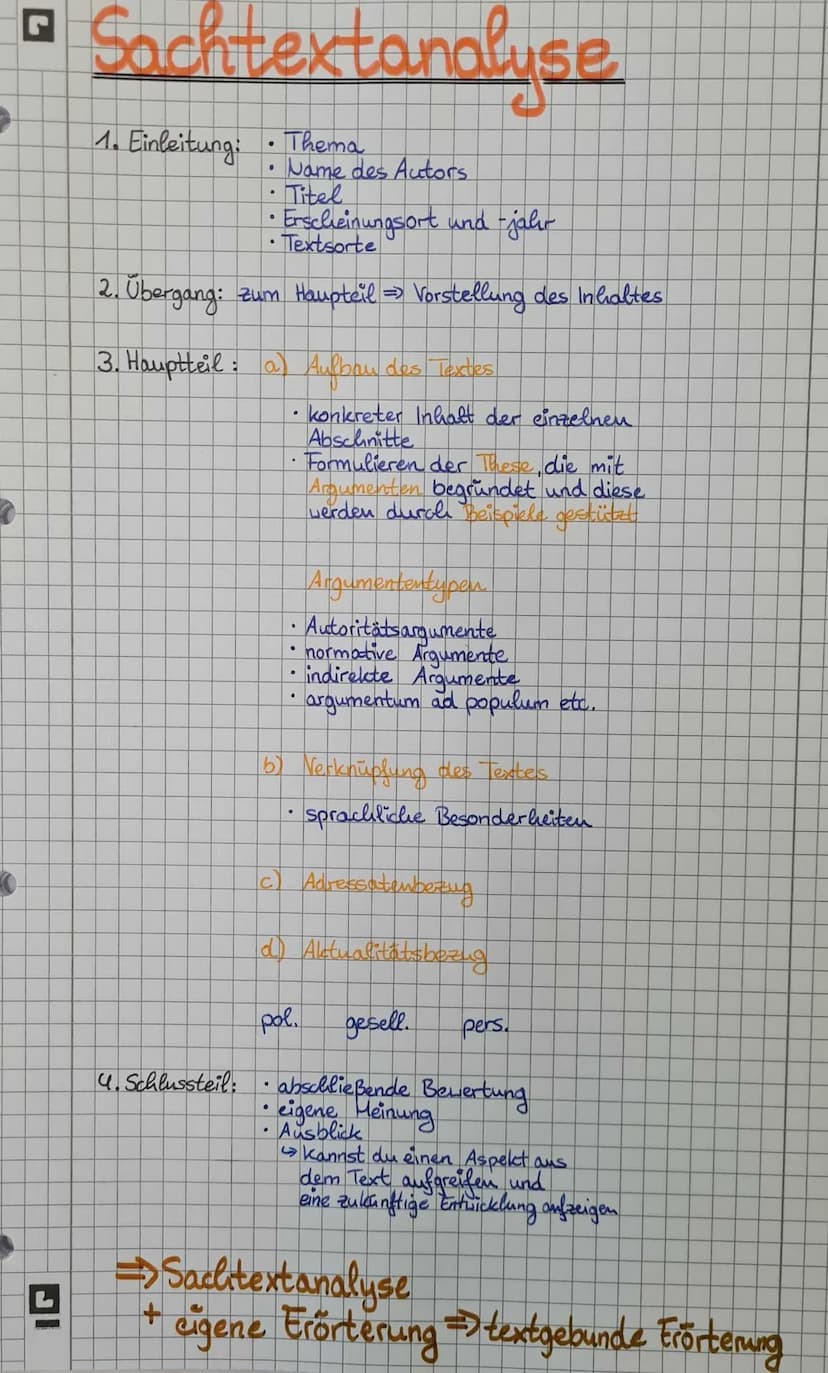 Sachtextanalyse
1. Einleitung: • Thema
• Name des Autors
• Titel
• Erscheinungsort und -jahr
• Textsorte
2. Übergang: zum Haupteil ⇒ Vorstellung des Inhaltes
3. Hauptteil: a) Aufbau des Textes
• konkreter Inhalt der einzelnen
Abschnitte
• Formulieren der These, die mit
Argumenten begründet und diese
werden durch Beispiele gestützt
Argumententypen
• Autoritätsargumente
• normative Argumente
• indirekte Argumente
• argumentum ad populum etc.
b) Verknüpfung des Textes
• sprachliche Besonderheiten
c) Adressatenbezug
d) Aktualitätsbezug
pol. gesell. pers.
4. Schlussteil: • abschließende Bewertung
• eigene Meinung
• Ausblick
↪ kannst du einen Aspekt aus
dem Text aufgreifen und
eine zukünftige Entwicklung aufzeigen
⇒ Sachtextanalyse
+ eigene Erörterung ⇒ textgebunde Erörterung